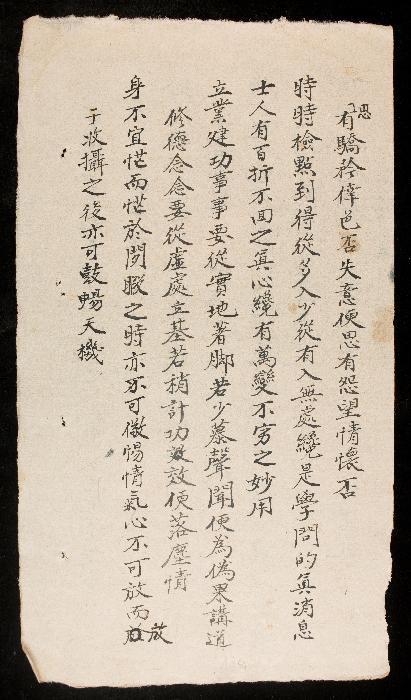 思有驕矜倖色否失意便思有怨望情懷否
時時檢點到得從多入少從有入無處纔是學問的真消息
士人有百折不回之真心纔有萬變不窮之妙用
立業建功事事要從實地著脚若少慕聲聞便為偽果講道
修德念念要從虛處立基若稍計功效便落塵情
身不宜忙而忙於閒暇之時亦不可儆惕惰氣心不可放而放
于收攝之後亦可鼓暢天機